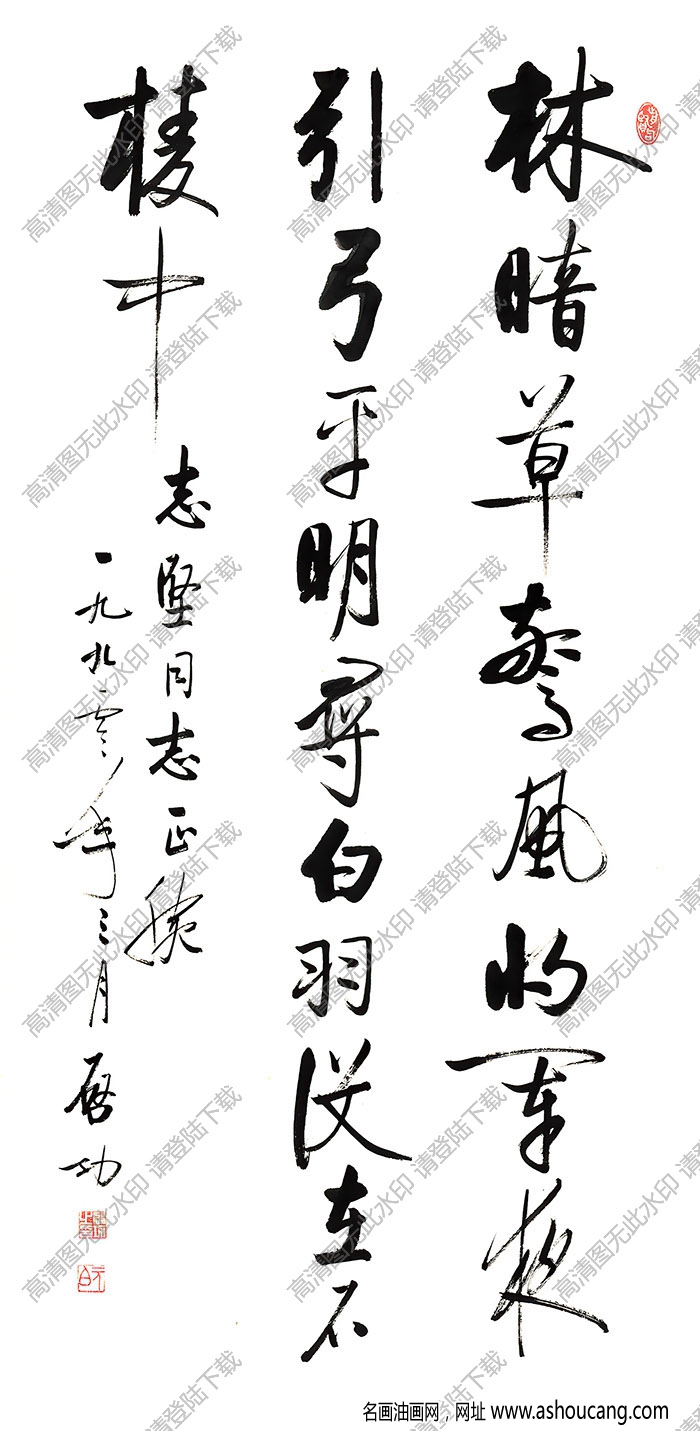 林暗草驚風將軍夜
引弓平明尋白羽没在石
棱中
志堅同志正腕
一九九零年三月 啓功
高清图无此水印 请登陆下载
名画油画网，网址 www.ashoucang.com